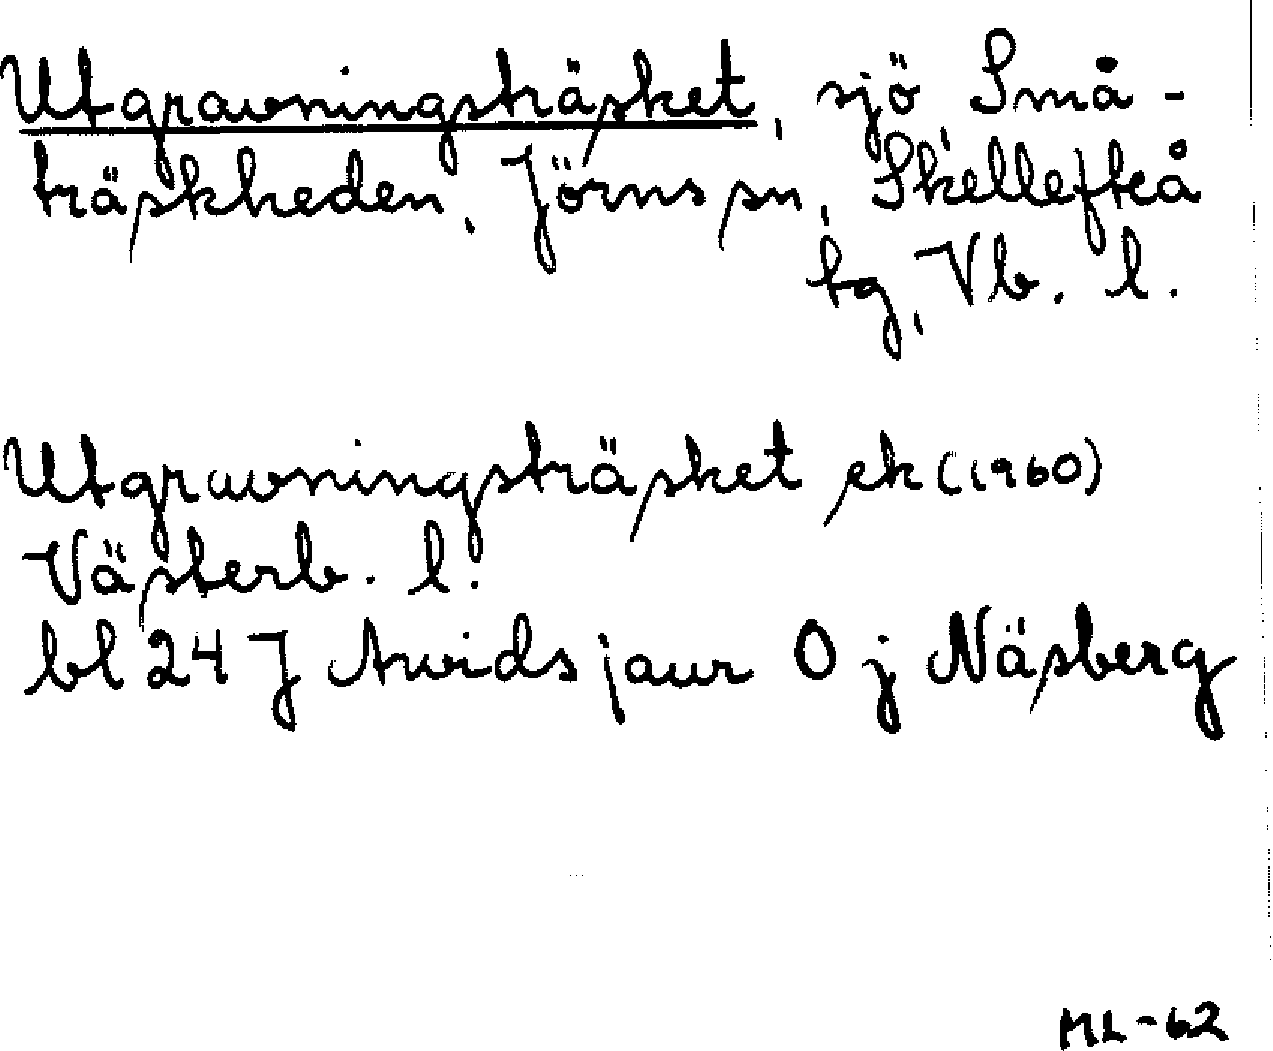 Utgravningsträsket, sjö Små-
träskheden, Jörns sn, Skellefteå
tg, Vb. l.
Utgravningsträsket ek (1960)
Västerb. l.
bl 24 J Arvidsjaur O j Näsberg
ML-62